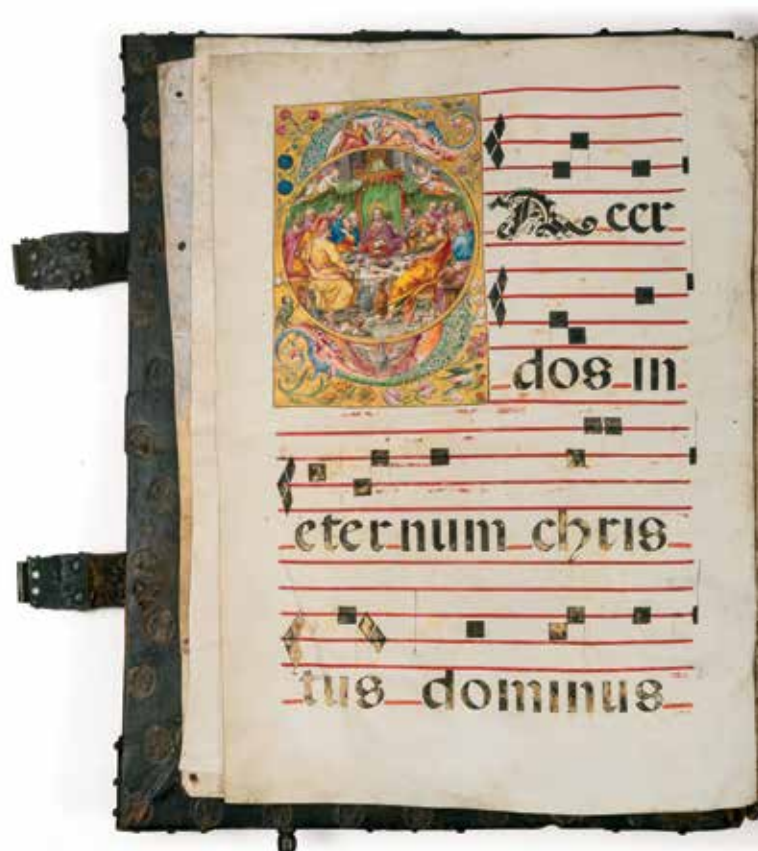 S Acer
dos in
eternum chris
tus dominus